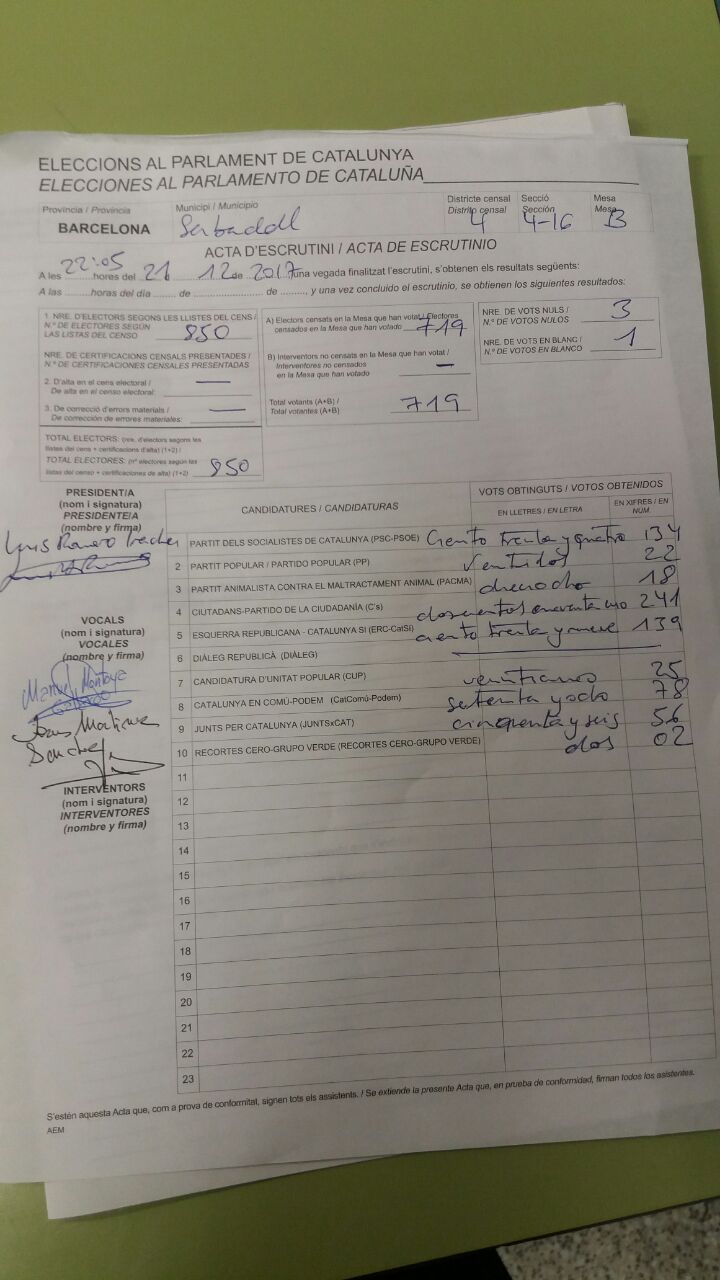 ELECCIONS AL PARLAMENT DE CATALUNYA
ELECCIONES AL PARLAMENTO DE CATALUÑA
Provincia / Provincia
BARCELONA
Municipi / Municipio
Sabadell
Districte censal
Distrito censal
4
Secció
Sección
4-16
Mesa
Mesa
B
ACTA D'ESCRUTINI / ACTA DE ESCRUTINIO
A les 22:05 hores del 21 12 de 2017 una vegada finalitzat l'escrutini, s'obtenen els resultats següents:
A las ......... horas del día ........ de ........................ de ........, y una vez concluido el escrutinio, se obtienen los siguientes resultados:
1. NRE. D'ELECTORS SEGONS LES LLISTES DEL CENS /
N.º DE ELECTORES SEGÚN
LAS LISTAS DEL CENSO 850
NRE. DE CERTIFICACIONS CENSALS PRESENTADES /
N.º DE CERTIFICACIONES CENSALES PRESENTADAS
2. D'alta en el cens electoral / —
De alta en el censo electoral:
3. De correcció d'errors materials / —
De corrección de errores materiales:
TOTAL ELECTORS: (nre. d'electors segons les
llistes del cens + certificacions d'alta) (1+2) /
TOTAL ELECTORES: (nº electores según las
listas del censo + certificaciones de alta) (1+2) 850
A) Electors censats en la Mesa que han votat / Electores
censados en la Mesa que han votado 719
B) Interventors no censats en la Mesa que han votat /
Interventores no censados
en la Mesa que han votado —
Total votants (A+B) /
Total votantes (A+B) 719
NRE. DE VOTS NULS /
N.º DE VOTOS NULOS 3
NRE. DE VOTS EN BLANC /
N.º DE VOTOS EN BLANCO 1
PRESIDENT/A
(nom i signatura)
PRESIDENTE/A
(nombre y firma)
Luis Romero
VOCALS
(nom i signatura)
VOCALES
(nombre y firma)
Manuel Montoya
Martinez
Sanchez
INTERVENTORS
(nom i signatura)
INTERVENTORES
(nombre y firma)
CANDIDATURES / CANDIDATURAS
VOTS OBTINGUTS / VOTOS OBTENIDOS
EN LLETRES / EN LETRA
EN XIFRES / EN NÚM.
PARTIT DELS SOCIALISTES DE CATALUNYA (PSC-PSOE) Ciento trenta y quatro 134
2 PARTIT POPULAR / PARTIDO POPULAR (PP) ventidos 22
3 PARTIT ANIMALISTA CONTRA EL MALTRACTAMENT ANIMAL (PACMA) dieciocho 18
4 CIUTADANS-PARTIDO DE LA CIUDADANÍA (C's) doscientos cuarenta uno 241
5 ESQUERRA REPUBLICANA - CATALUNYA SÍ (ERC-CatSí) ciento trenta y nueve 139
6 DIÀLEG REPUBLICÀ (DIÀLEG) —
7 CANDIDATURA D'UNITAT POPULAR (CUP) 25
8 CATALUNYA EN COMÚ-PODEM (CatComú-Podem) setenta y ocho 78
9 JUNTS PER CATALUNYA (JUNTSxCAT) cinquenta y seis 56
10 RECORTES CERO-GRUPO VERDE (RECORTES CERO-GRUPO VERDE) dos 02
11
12
13
14
15
16
17
18
19
20
21
22
23
S'estén aquesta Acta que, com a prova de conformitat, signen tots els assistents. / Se extiende la presente Acta que, en prueba de conformidad, firman todos los asistentes.
AEM